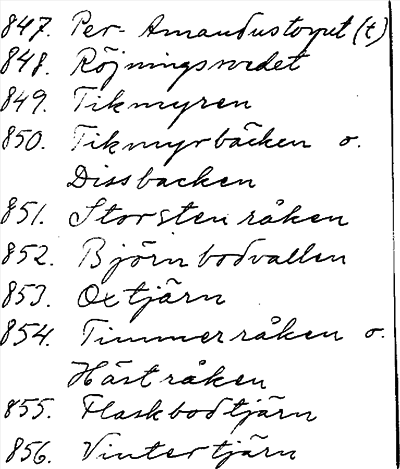 847. Per-Amandustorpet (t)
848. Röjningsvedet
849. Tikmyren
850. Tikmyrbäcken o.
Dissbacken
851. Storstenråken
852. Björnbodvallen
853. Oxtjärn
854. Timmerråken o.
Hästråken
855. Flaskbodtjärn
856. Vintertjärn